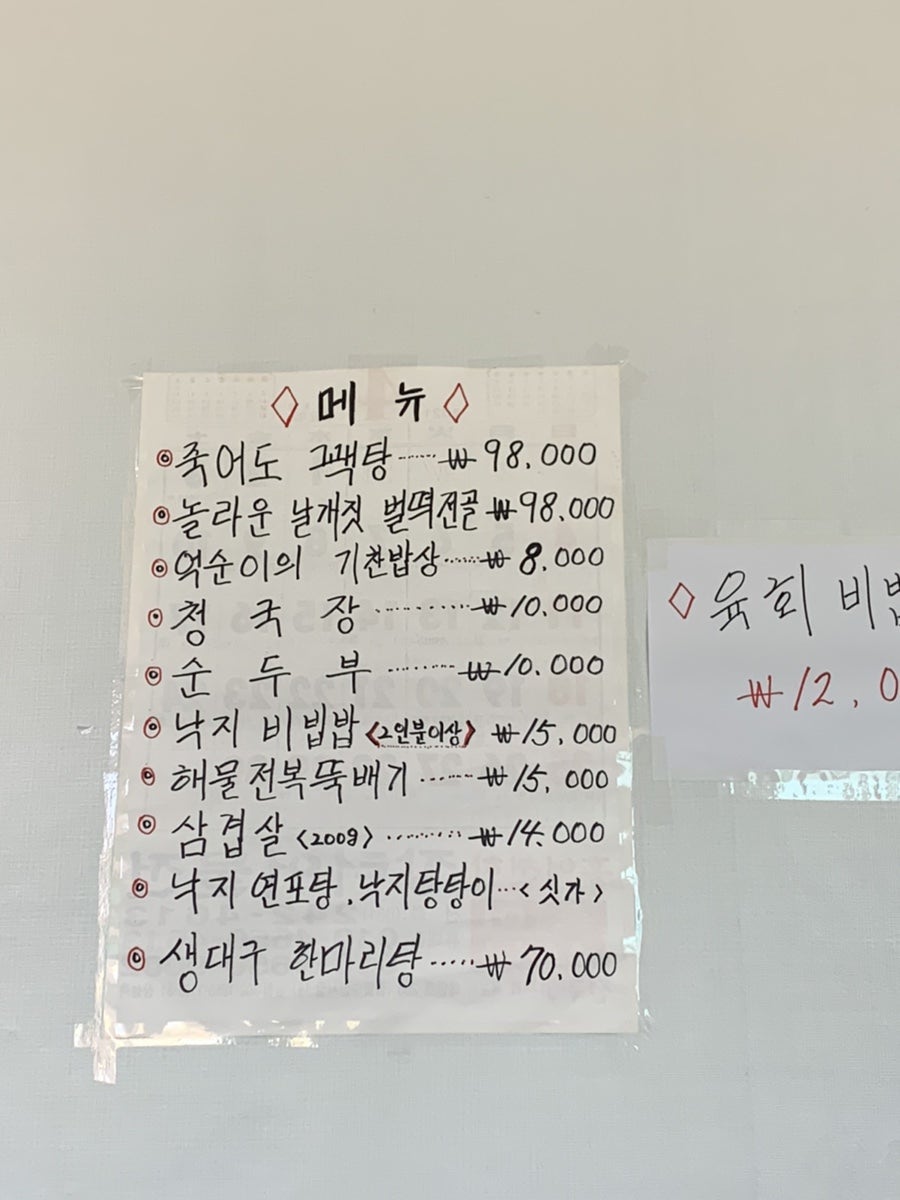 ◇ 메 뉴 ◇
◎ 죽어도 고팩탕 ······ ₩ 98.000
◎ 놀라운 날개짓 벌떡전골 ₩ 98.000
◎ 억순이의 기찬밥상 ······ ₩ 8.000
◎ 청 국 장 ·········· ₩ 10.000
◎ 순 두 부 ········ ₩ 10.000
◎ 낙지 비빔밥 <2인분이상> ₩ 15,000
◎ 해물전복뚝배기 ······ ₩ 15,000
◎ 삼겹살 <200g> ········ ₩ 14.000
◎ 낙지 연포탕, 낙지탕탕이 ··· < 싯가 >
◎ 생대구 한마리탕 ····· ₩ 70.000
◇ 육회 비
₩ 12,0